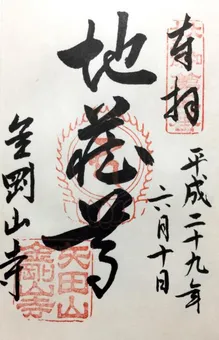 奉拝
平成二十九年
六月十日
地蔵尊
金剛山寺
矢田山
金剛山寺